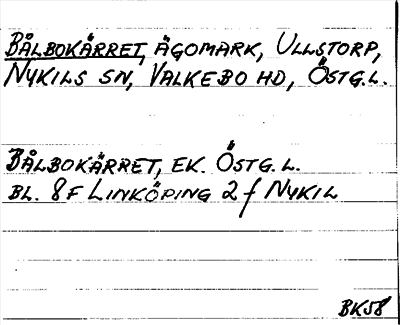 BÅLBOKÄRRET, ÄGOMARK, ULLSTORP,
NYKILS SN, VALKEBO HD, ÖSTG.L.
BÅLBOKÄRRET, EK. ÖSTG.L.
BL. 8F LINKÖPING 2 f NYKIL
BK58